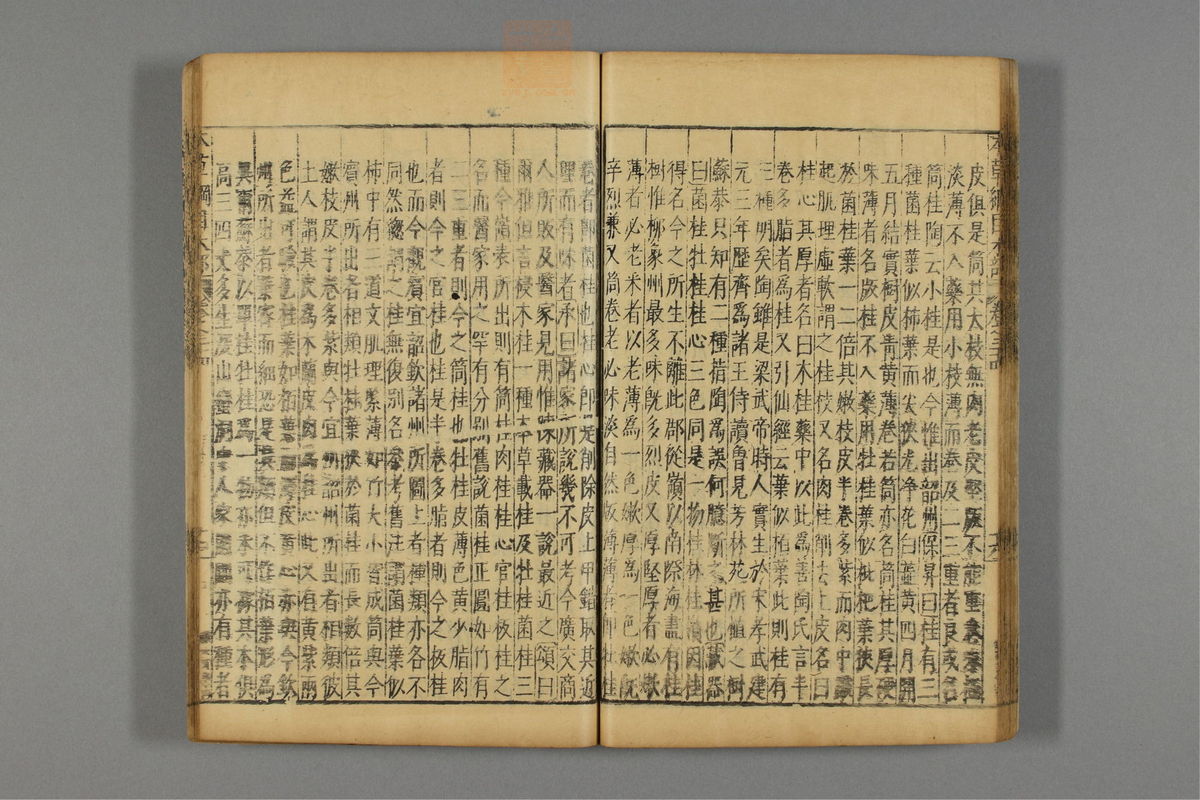 皮俱是筒其大枝無肉老皮堅版不能重卷味極
淡薄不入藥用小枝薄而卷及二三重者良或名
筒桂陶云小桂是也今惟出韶州保昇曰桂有三
種菌桂葉似柿葉而尖狹光淨花白蕊黃四月開
五月結實樹皮青黃薄卷若筒亦名筒桂其厚硬
味薄者名版桂不入藥用牡桂葉似枇杷葉狹長
於菌桂葉一二倍其嫩枝皮半卷多紫而肉中皺
起肌理虛軟謂之桂枝又名肉桂削去上皮名曰
桂心其厚者名曰木桂藥中以此為善陶氏言半
卷多脂者為桂又引仙經云葉似柏葉此則桂有
三種明矣陶雖是梁武帝時人實生於宋孝武建
元三年歷齊為諸王侍讀曾見芳林苑所植之樹
蘇恭只知有二種指陶為誤何臆斷之甚也藏器
曰菌桂牡桂桂心三色同是一物桂林桂嶺因桂
得名今之所生不離此郡從嶺以南際海盡有桂
樹惟柳象州最多味既多烈皮又厚堅厚者必嫩
薄者必老采者以老薄為一色嫩厚為一色嫩既
辛烈兼又筒卷老必味淡自然版薄薄者即牡桂
卷者即菌桂也桂心即是削除皮上甲錯取其近
裏而有味者承曰諸家所說幾不可考今廣交商
人所販及醫家見用惟陳藏器一說最近之頌曰
爾雅但言梫木桂一種本草載桂及牡桂菌桂三
種今嶺表所出則有筒桂肉桂桂心官桂板桂之
名而醫家用之罕有分別舊說菌桂正圓如竹有
二三重者則今之筒桂也牡桂皮薄色黃少脂肉
者則今之官桂也桂是半卷多脂者則今之板桂
也而今觀賓宜韶欽諸州所圖上者種類亦各不
同然總謂之桂無復別名參考舊注謂菌桂葉似
柿中有三道文肌理緊薄如竹大小皆成筒與今
賓州所出者相類牡桂葉狹於菌桂而長數倍其
嫩枝皮半卷多紫與今宜州韶州所出者相類彼
土人謂其皮為木蘭皮肉為桂心此又有黃紫兩
色益可驗也桂葉如柏葉而澤黑皮黃心赤與今欽
州所出者葉密而細恐是其類但不作柏葉形為
異爾蘇恭以單桂牡桂為一物亦未可據其木俱
高三四丈多生深山蠻洞中人家園圃亦有種者